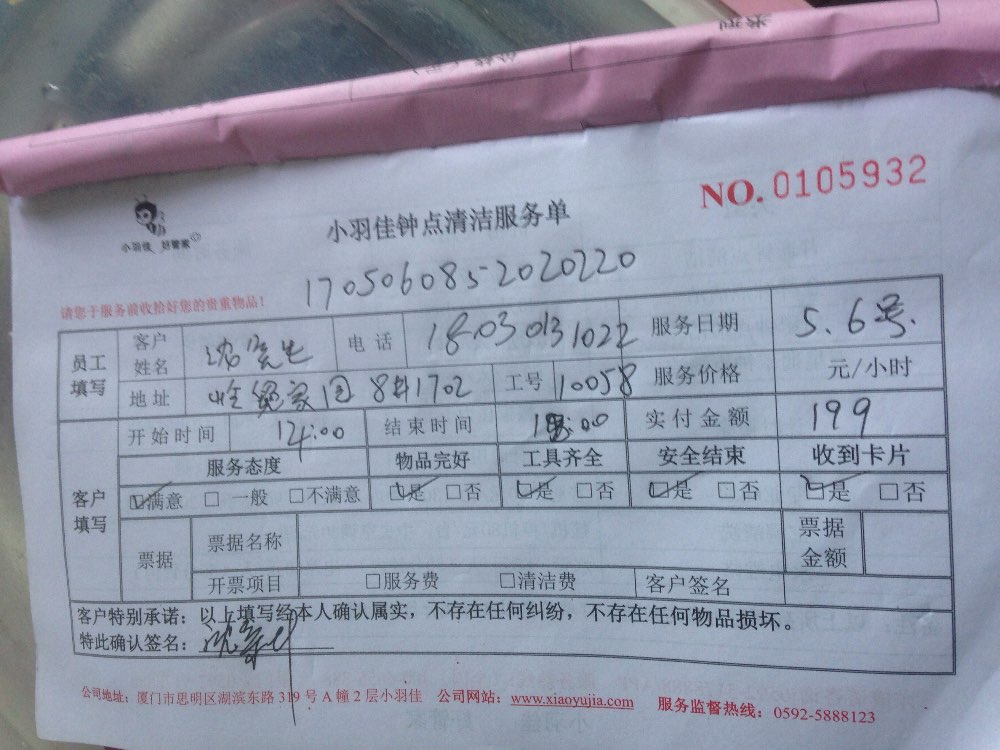 类型
NO.0105932
小羽佳 好管家
小羽佳钟点清洁服务单
1705060852020220
请您于服务前收拾好您的贵重物品!
员工填写 客户姓名 电话 18030131022 服务日期 5.6号.
地址 家园8#1702 工号 10058 服务价格 元/小时
客户填写 开始时间 14:00 结束时间 实付金额 199
服务态度 物品完好 工具齐全 安全结束 收到卡片
☑满意 □一般 □不满意 ☑是 □否 ☑是 □否 ☑是 □否 ☑是 □否
票据 票据名称 票据金额
开票项目 □服务费 □清洁费 客户签名
客户特别承诺:以上填写经本人确认属实,不存在任何纠纷,不存在任何物品损坏。
特此确认签名:
公司地址:厦门市思明区湖滨东路319号A幢2层小羽佳 公司网站:www.xiaoyujia.com 服务监督热线:0592-5888123